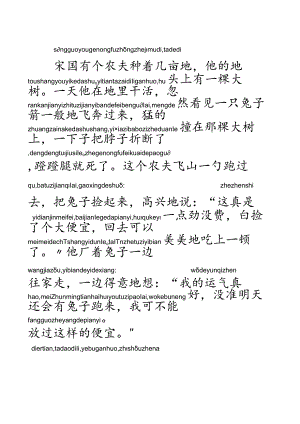 sǒngguoyougenongfuzhǒngzhejimudi,tadedi
宋国有个农夫种着几亩地，他的地
toushangyouyikedashu,yiliantazaidiliganhuo,hu
头上有一棵大树。一天他在地里干活，忽
rankanjianyizhituzijianyibandefeibēnguǒlai,mengde
然看见一只兔子箭一般地飞奔过来，猛的
zhuangzainakedashushang,yi•iazibabozizheduanle
撞在那棵大树上，一下子把脖子折断了
,dengdengtuǐjiusile,zhegenongfufeikuaidepaoguǒ
，蹬蹬腿就死了。这个农夫飞山一勺跑过
qu,batuzijianqilai,gaoxingdeshuō: zhezhenshi
去，把兔子捡起来，高兴地说：“这真是
yidianjinmeifei,baijianlegedapianyi,huqukeyi
一点劲没费，白捡了个大便宜，回去可以
meimeidechTshangyidunle,taITnzhetuziyibian
美美地吃上一顿了。〃他厂着兔子一边
wangjiazǒu,yibiandeyidexiang: wǒdeyunqizhen
往家走，一边得意地想：“我的运气真
hao,meiZhunmingtianhaihuyoutuzipaolai,wokebuneng
好，没准明天还会有兔子跑来，我可不能
fangguozheyangdepianyi。
放过这样的便宜。”
diertian,tadaodili,yebuganhuo,zhıshǒuzhena